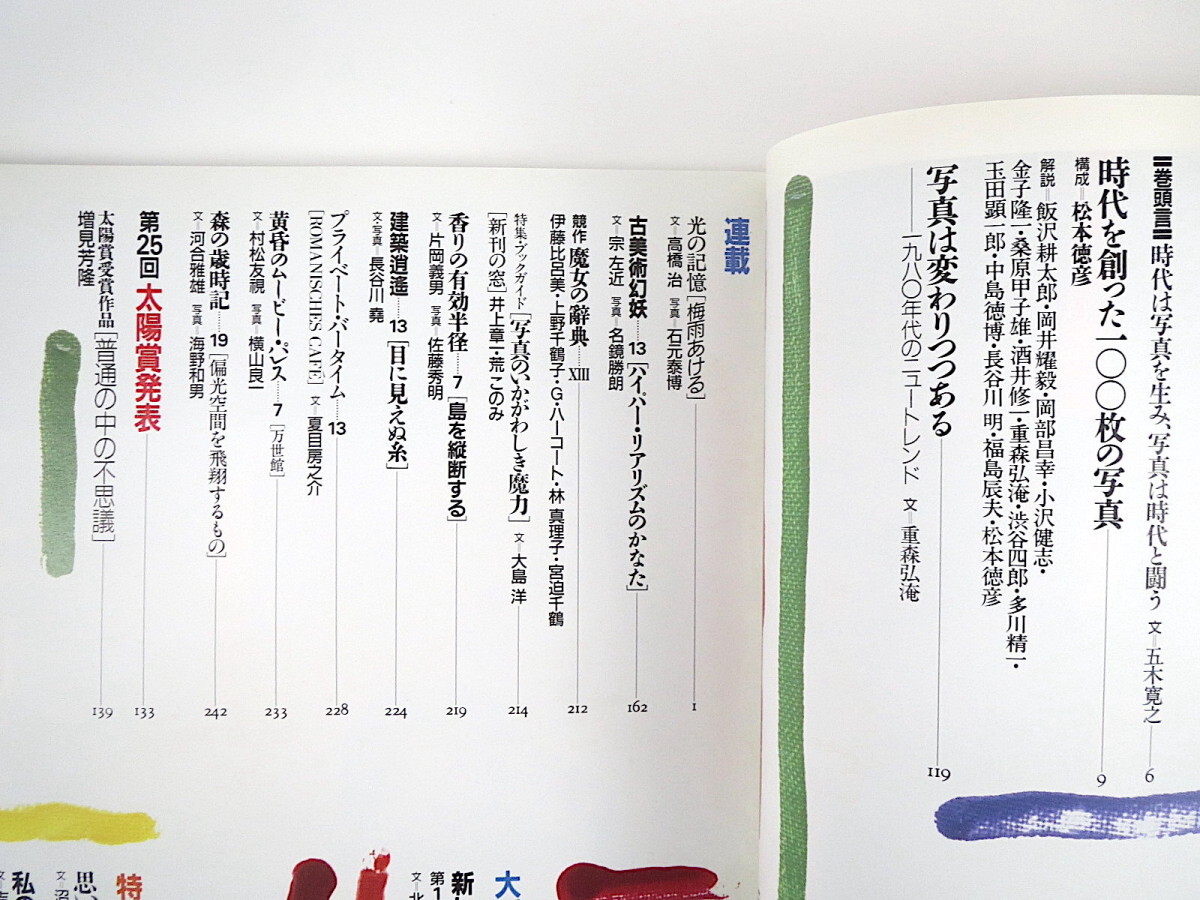 〓巻頭言〓時代は写真を生み、写真は時代と闘う 文=五木寛之 6
時代を創った一〇〇枚の写真 9
構成=松本徳彦
解説=飯沢耕太郎・岡井耀毅・岡部昌幸・小沢健志・
金子隆一・桑原甲子雄・酒井修一・重森弘淹・渋谷四郎・多川精一・
玉田顕一郎・中島徳博・長谷川 明・福島辰夫・松本徳彦
写真は変わりつつある 119
——一九八〇年代のニュートレンド 文=重森弘淹
連載
光の記憶[梅雨あける] 1
文=高橋 治 写真=石元泰博
古美術幻妖……13[ハイパー・リアリズムのかなた] 162
文=宗 左近 写真=名鏡勝朗
競作 魔女の辞典……XIII 212
伊藤比呂美・上野千鶴子・G・ハーコート・林 真理子・宮迫千鶴
特集・ブックガイド[写真のいかがわしき魔力] 文=大島 洋 214
[新刊の窓]井上章一・荒 このみ
香りの有効半径……7[島を縦断する] 219
文=片岡義男 写真=佐藤秀明
建築逍遙……13[目に見えぬ糸] 224
文・写真=長谷川 堯
プライベート・バータイム……13 228
[ROMANISCHES CAFE] 文=夏目房之介
黄昏のムービー・パレス……7[万世館] 233
文=村松友視 写真=横山良一
森の歳時記……19[偏光空間を飛翔するもの] 242
文=河合雅雄 写真=海野和男
第25回 太陽賞発表 133
太陽賞受賞作品[普通の中の不思議] 139
増見芳隆
大
新
第1
文=北
特
思い
文=
私の
文=